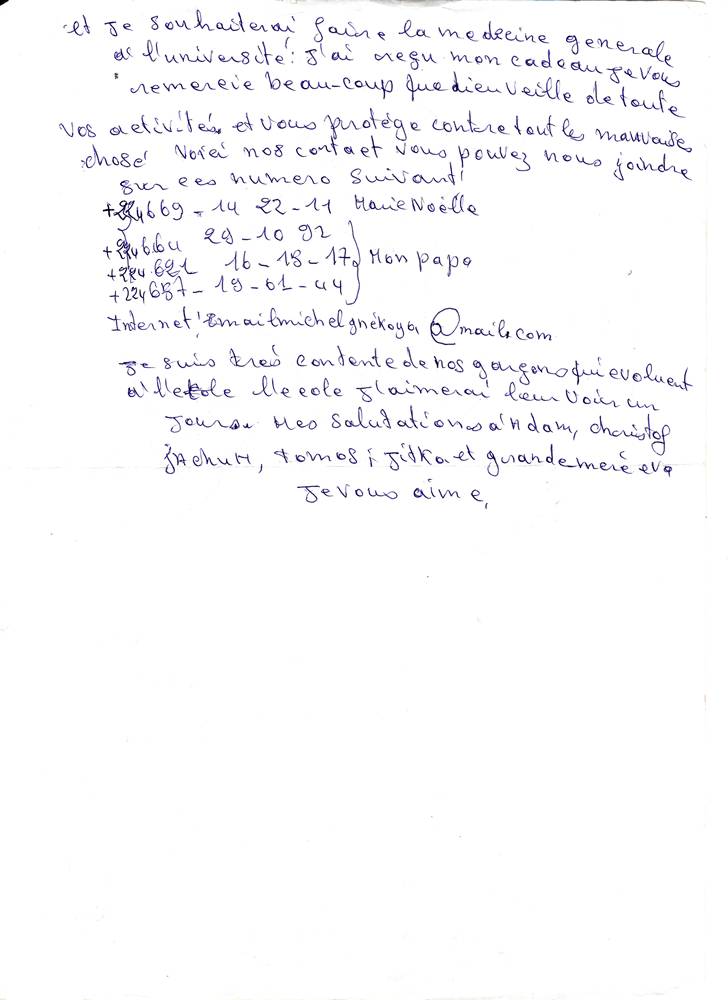 et je souhaiterai faire la medecine generale
a l'université! j'ai reçu mon cadeau je vous
remercie beau-coup que dieu veille de toute
vos activités et vous protége contre tout les mauvaises
chose Voici nos contact vous pouvez nous joindre
sur ces numero suivant!
+224669-14 22-11 Marie Noëlle
+224664 29-10 92
+224.621 16-18-17 Mon papa
+224657-19-61-44
Internet! Email michelgnékoya @mail.com
Je suis trés contente de nos garçons qui evoluent
a l'ecole j'aimerai leur voir un
jour. Mes salutations a Adam, christof
jACHYM, tomos; jitka et grandemere eva
Je vous aime,